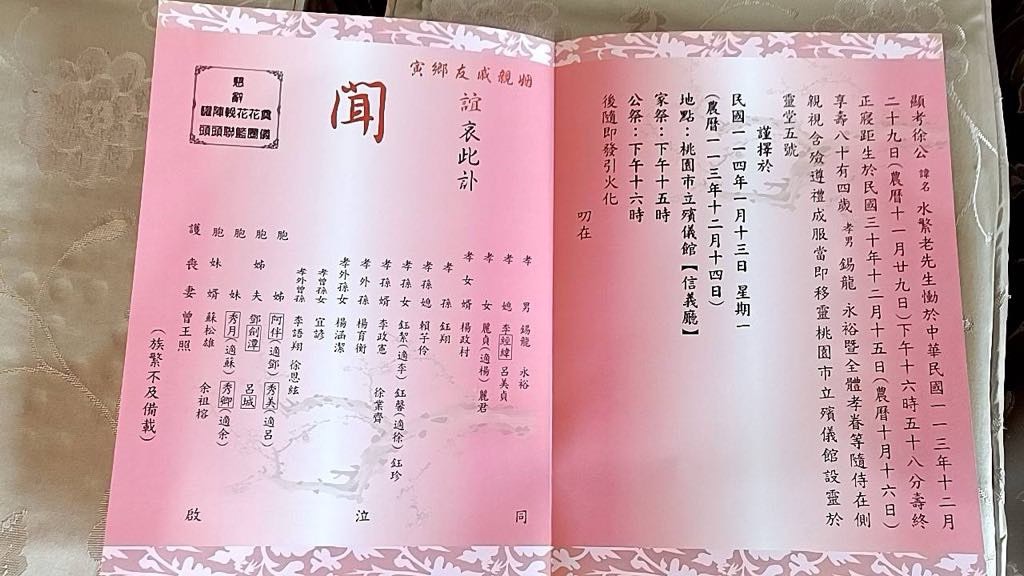 顯考徐公 諱名 水繁老先生慟於中華民國一一三年十二月
二十九日(農曆十一月廿九日)下午十六時五十八分壽終
正寢距生於民國三十年十二月十五日(農曆十月十六日)
享壽八十有四歲 孝男 錫龍 永裕暨全體孝眷等隨侍在側
親視含殮遵禮成服當即移靈桃園市立殯儀館設靈於
靈堂五號
謹擇於
民國一一四年一月十三日 星期一
(農曆一一三年十二月十四日)
地點:桃園市立殯儀館【信義廳】
家祭:下午十五時
公祭:下午十六時
後隨即發引火化
叨在
姻親戚友鄉寅
誼 哀此訃
聞
懇辭
奠花花輓陣
儀圈籃聯頭頭
孝男 錫龍 永裕
孝媳 李經緯 呂美貞
孝女 麗貞(適楊) 麗君
孝女婿 楊政村
孝孫 鈺翔
孝孫媳 賴子伶
孝孫女 鈺絜(適李) 鈺馨(適徐) 鈺珍
孝孫婿 李政憲 徐業齊
孝外孫 楊育衡
孝外孫女 楊涵潔
孝曾孫女 宜諺
孝外曾孫 李語翔 徐恩絃
胞姊 阿伴(適鄧) 秀美(適呂)
胞姊夫 鄧劍潭 呂城
胞妹 秀月(適蘇) 秀卿(適余)
胞妹婿 蘇松雄 余祖榕
護喪妻 曾王照
(族繁不及備載)
同 泣 啟